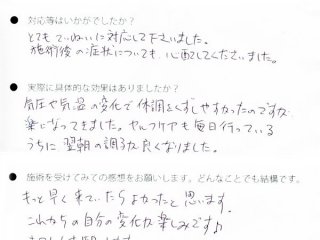 ● 対応等はいかがでしたか？
とてもていねいに対応して下さいました。
施術後の症状についても、心配してくださいました。
● 実際に具体的な効果はありましたか？
気圧や気温の変化で体調をくずしやすかったのですが
楽になってきました。セルフケアも毎日行っている
うちに翌朝の調子が良くなりました。
● 施術を受けてみての感想をお願いします。どんなことでも結構です。
もっと早く来ていたらよかったと思います。
これからの自分の変化が楽しみです♪